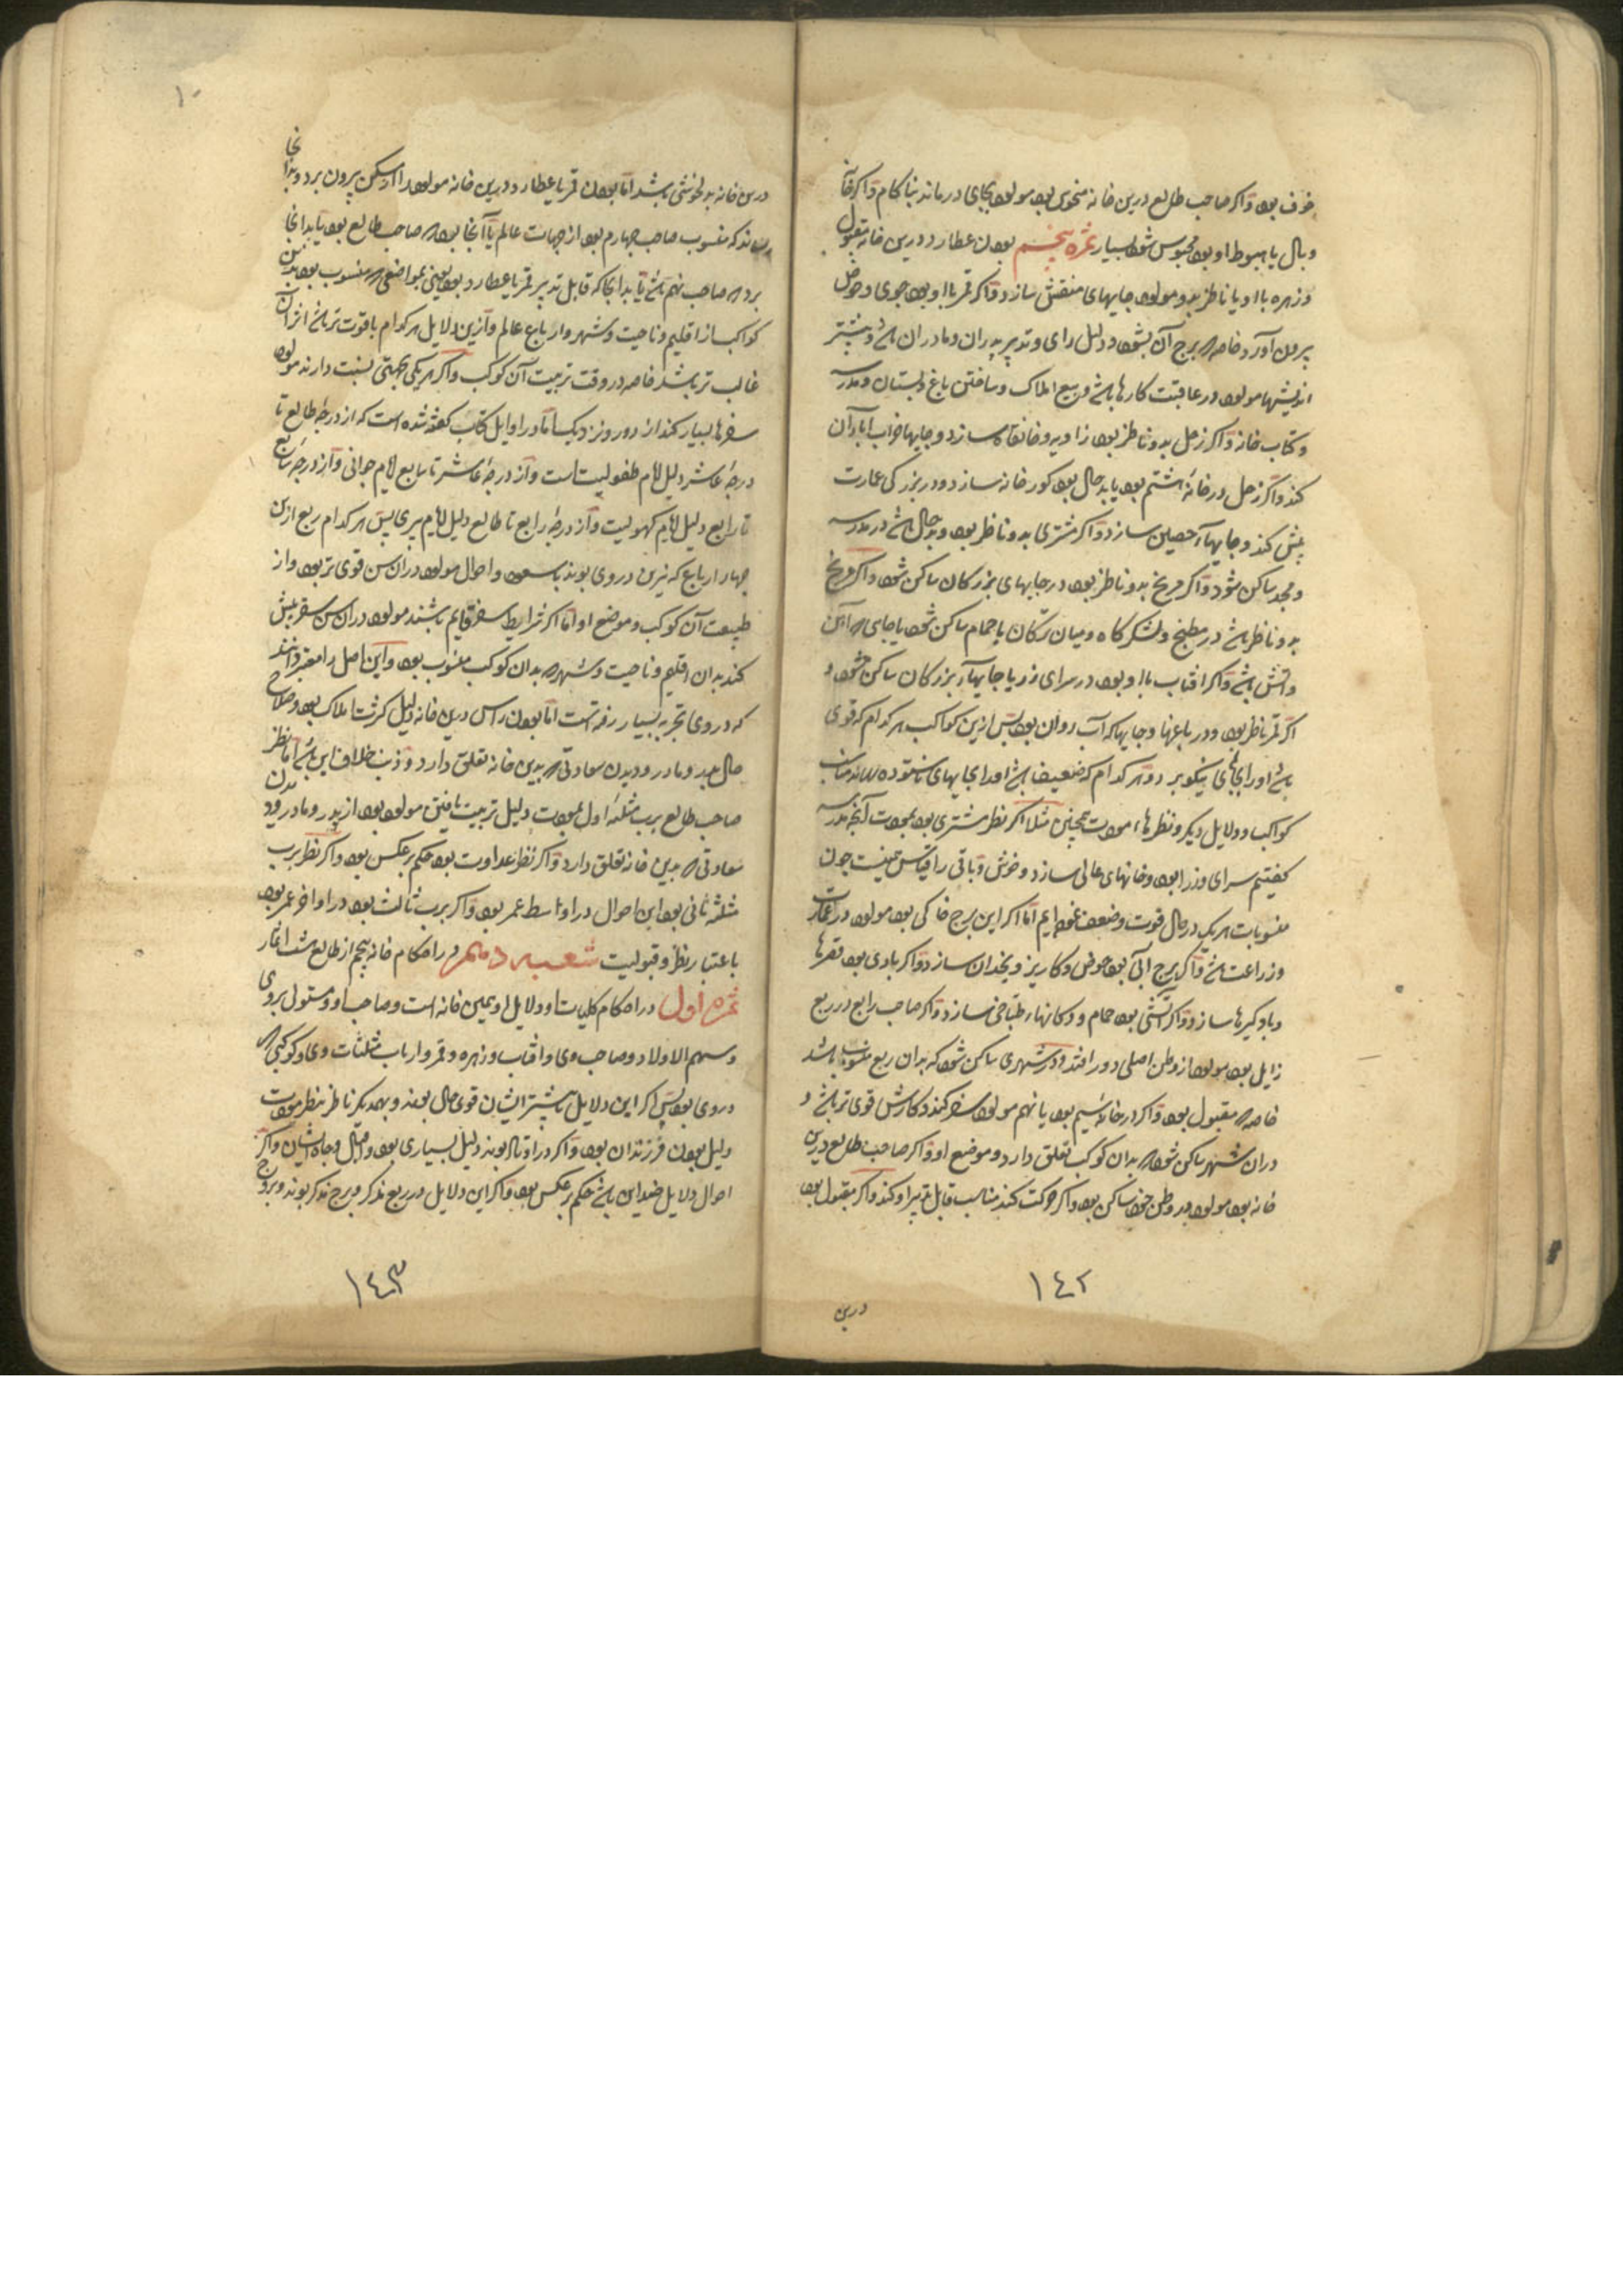 خوف بود و اگر صاحب طالع درین خانه منحوس بود مولود بجای درماند بناکام و اگر خانه
وبال یا هبوط او بود محبوس شود بسیار ثمره پنجم بودن عطارد درین خانه مقبول
و زهره با او یا ناظر بدو مولود جایهای منقش سازد و اگر قمر با او بود جوی و حوض
بیرون آورد خاصه که برج آبی بود و دلیل رای و تدبیر پدران و مادران باشد و بیشتر
اندیشهاء مولود در عاقبت کارها باشد و بیع املاک و ساختن باغ و بستان و مدرسه
و کتاب خانه و اگر زحل بدو ناظر بود زاویه و خانقاه سازد و جایهاء خراب آبادان
کند و اگر زحل در خانه هشتم بود یا بدحال بود کورخانه سازد و در بزرگی عمارت
بیش کند و جایهاء حصین سازد و اگر مشتری بدو ناظر بود و بدحال باشد در مدرسه
و مسجد ساکن شود و اگر مریخ بدو ناظر بود در جایهای بزرگان ساکن شود و اگر مریخ
بدو ناظر باشد در مطبخ و لشکرگاه و میان ترکان یا حمام ساکن شود یا جای که آهن
و آتش باشد و اگر آفتاب با او بود در سرای زر یا جایهاء بزرگان ساکن شود و
اگر قمر ناظر بود در باغها و جایها که آب روان بود پس ازین کواکب هر کدام که قوی
باشد او را بجای نیکو برد و هر کدام که ضعیف باشد او را بجایهای ناستوده
کواکب و دلایل دیگر و نظرهاء مودت همچنین مثلا اگر نظر مشتری بود بمودت آنچه مدرسه
گفتیم سرای وزرا بود و خانهای عالی سازد و خوش و باقی را قیاس همینست چون
منسوبات هر یک در حال قوت و ضعف نموده ایم اما اگر این برج خاکی بود مولود در عمارت
و زراعت باشد و اگر برج آبی بود حوض و کاریز و یخدان سازد و اگر بادی بود قصرها
و بادگیرها سازد و اگر آتشی بود حمام و دکانهاء طباخی سازد و اگر صاحب رابع در ربع
زایل بود مولود از وطن اصلی دور افتد و در شهری ساکن شود که بدان ربع منسوب باشد
خاصه که مقبول بود و اگر در خانه سیم بود یا نهم مولود سفر کند و کارش قوی تر باشد و
در آن شهر ساکن شود که بدان کوکب تعلق دارد و موضع او و اگر صاحب طالع درین
خانه بود مولود در وطن خود ساکن بود و اگر حرکت کند مناسب قابل تدبیر او کند و اگر مقبول بود
١٤٢
درین
١٠
درین خانه بدلخوشی باشد اما بودن قمر یا عطارد درین خانه مولود را از مسکن بیرون برد و بدانجا
رساند که منسوب صاحب چهارم بود از جهات عالم یا آنجا بود که صاحب طالع بود یا بدانجا
برد که صاحب نهم باشد یا بدانجا که قابل تدبیر قمر یا عطارد بود یعنی بمواضعی که منسوب بود بدین
کواکب از اقلیم و ناحیت و شهر و ارباع عالم و ازین دلایل هر کدام با قوت تر باشد اثر آن
غالب تر باشد خاصه در وقت تربیت آن کوکب و اگر هر یکی بجهتی نسبت دارند مولود
سفرها بسیار کند از دور و نزدیک اما در اوایل کتاب گفته شده است که از درجه طالع تا
درجه عاشر دلیل ایام طفولیت است و از درجه عاشر تا سابع ایام جوانی و از درجه سابع
تا رابع دلیل ایام کهولیت و از درجه رابع تا طالع دلیل ایام پیری پس هر کدام ربع ازین
چهار ارباع که نیرین در وی بوند یا سعود احوال مولود در آن سن قوی تر بود و از
طبیعت آن کوکب و موضع او اما اگر شرایط سفر قایم باشند مولود در آن سن سفر بیش
کند بدان اقلیم و ناحیت و شهر که بدان کوکب منسوب بود و این اصل را معتبر دانند
که در وی تجربه بسیار رفته است اما بودن راس درین خانه دلیل کثرت املاک بود و صلاح
حال پدر و مادر و دیدن سعادتی که بدین خانه تعلق دارد و ذنب خلاف این باشد اما نظر
صاحب طالع برب مثلثه اول بمودت دلیل تربیت یافتن مولود بود از پدر و مادر و دیدن
سعادتی که بدین خانه تعلق دارد و اگر نظر عداوت بود حکم برعکس بود و اگر نظر برب
مثلثه ثانی بود این احوال در اواسط عمر بود و اگر برب ثالث بود در اواخر عمر بود
باعتبار نظر و قبولیت شعبه دهم در احکام خانه پنجم از طالع
ثمره اول در احکام کلیات او دلایل او همین خانه است و صاحب او و مستولی بر وی
و سهم الاولاد و صاحب وی و آفتاب و زهره و قمر و ارباب مثلثات وی و کوکبی که
در وی بود پس اگر این دلایل یا بیشتر ایشان قوی حال بوند و بهمدیگر ناظر بنظر مودت
دلیل بودن فرزندان بود و اگر در اوتاد بوند دلیل بسیاری بود و اقبال و جاه ایشان و اگر
احوال دلایل ضد این باشد حکم برعکس بود و اگر این دلایل در ربع مذکر و برج مذکر بوند و بروج
١٤٣